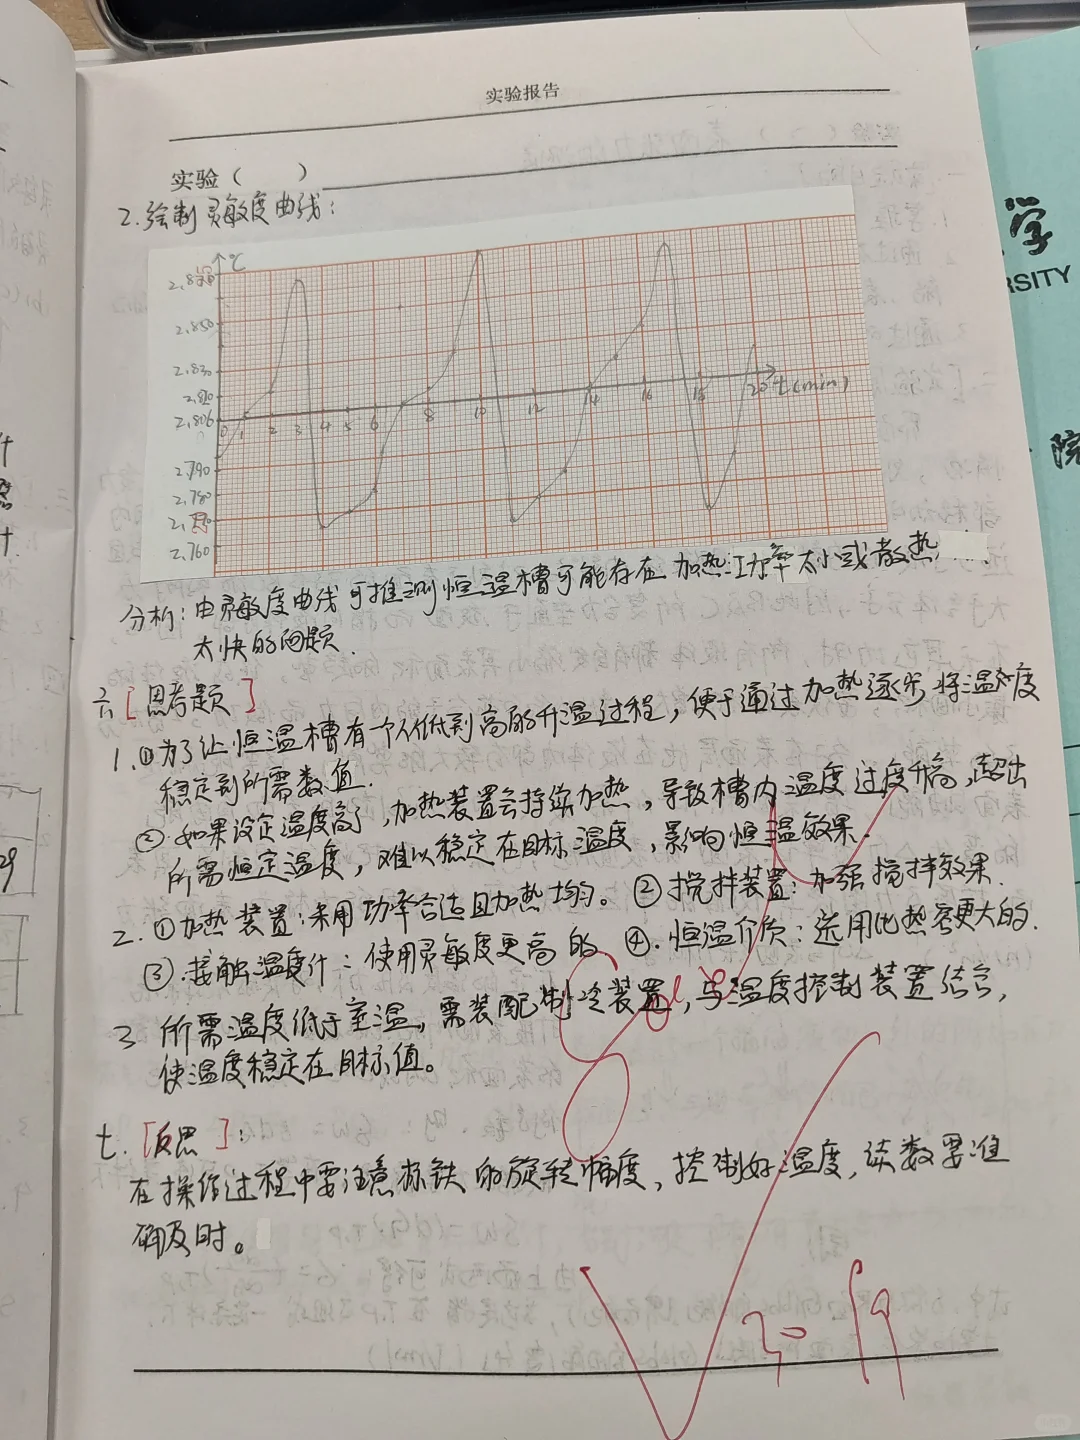 实验报告
实验（ ）
2.绘制灵敏度曲线：
℃
2.850
2.830
2.810
2.806
2.790
2.780
2.760
0 1 2 3 4 5 6 8 10 12 14 16 18 20 t(min)
分析：由灵敏度曲线可推测恒温槽可能存在加热功率太小或散热
太快的问题.
六[思考题]
1.①为了让恒温槽有个从低到高的升温过程，便于通过加热逐步将温度
稳定到所需数值.
②.如果设定温度高了,加热装置会持续加热，导致槽内温度过度升高,超出
所需恒定温度，难以稳定在目标温度，影响恒温效果.
2.①加热装置：采用功率合适且加热均匀。②搅拌装置：加强搅拌效果.
③.接触温度计：使用灵敏度更高的 ④.恒温介质：选用比热容更大的.
3 所需温度低于室温，需装配制冷装置，与温度控制装置结合，
使温度稳定在目标值。
七.[反思]：
在操作过程中要注意标铁的旋转幅度，控制好温度，读数要准
确及时。
学
RSITY
院
29